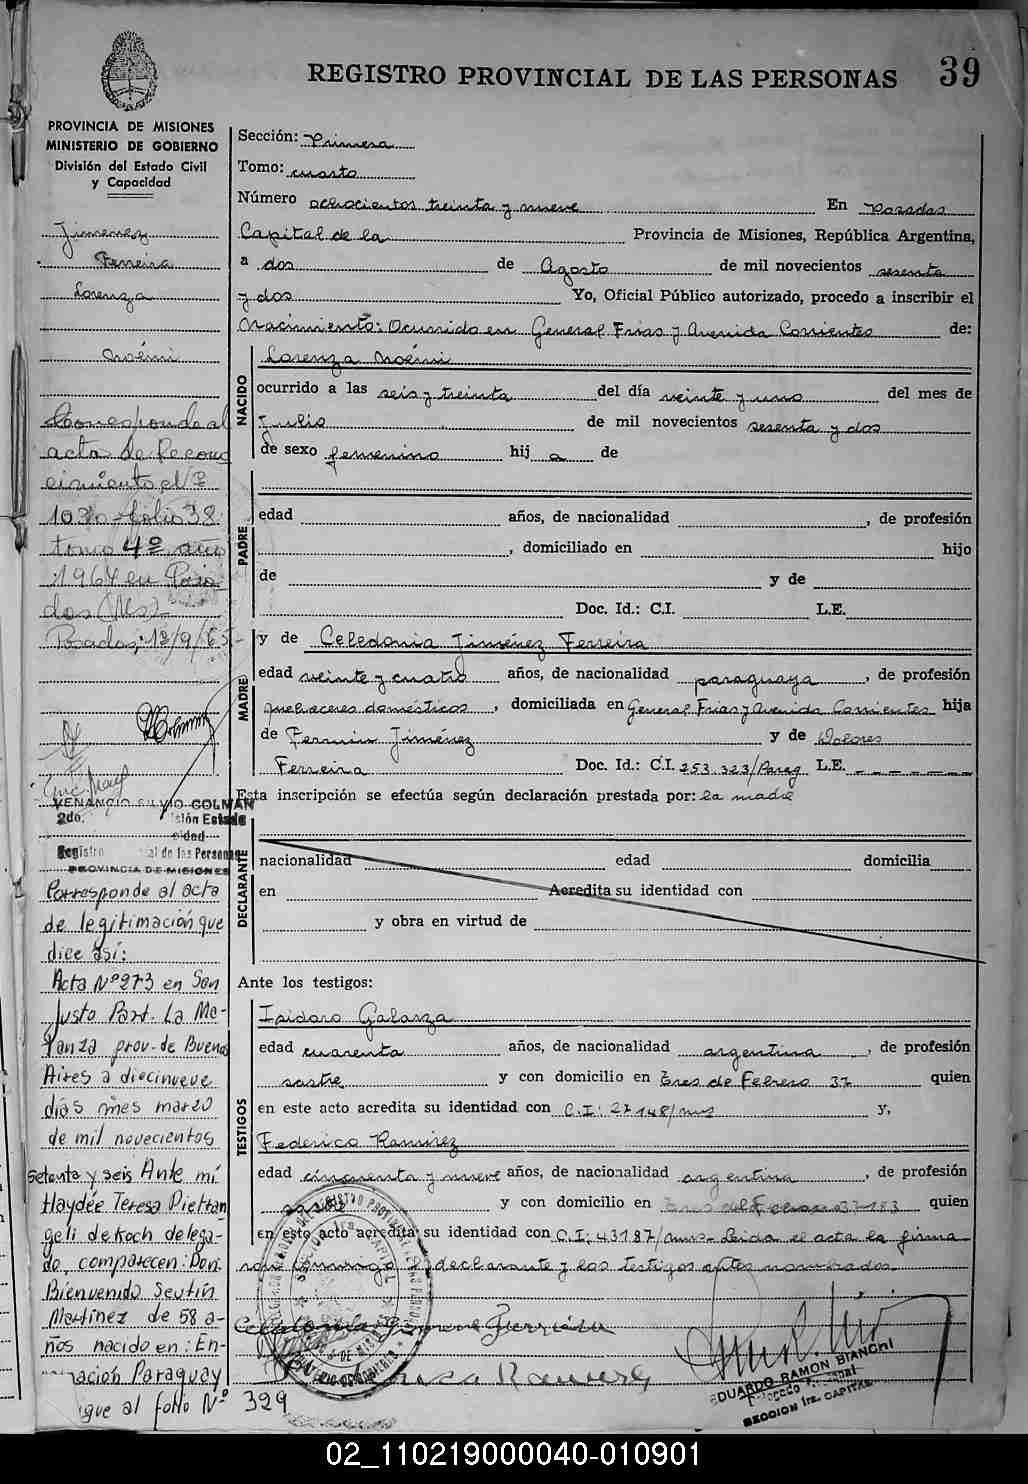 REGISTRO PROVINCIAL DE LAS PERSONAS 39
PROVINCIA DE MISIONES
MINISTERIO DE GOBIERNO
División del Estado Civil
y Capacidad
Jimenez
Ferreira
Lorenza
Noémi
Corresponde al
acta de Recono
cimiento el Nº
103 folio 38
tomo 4º año
1964 en Posa
das (Ms)-
Posadas, 13/9/65-
VENANCIO SILVIO COLMAN
2do.
Registro al de las Personas
PROVINCIA DE MISIONES
Corresponde al acta
de legitimación que
dice así:
Acta Nº 273 en San
Justo Part. La Ma-
tanza prov. de Buenos
Aires a diecinueve
días mes marzo
de mil novecientos
setenta y seis Ante mí
Haydée Teresa Pietran
geli de Koch delega-
do, comparecen: Don
Bienvenido
Martínez de 58 a-
ños nacido en: En-
nación Paraguay
igue al folio Nº 329
Sección: Primera
Tomo: cuarto
Número ochocientos treinta y nueve En Posadas
Capital de la Provincia de Misiones, República Argentina,
a dos de Agosto de mil novecientos sesenta
y dos Yo, Oficial Público autorizado, procedo a inscribir el
Nacimiento: Ocurrido en General Frias y Avenida Corrientes de:
NACIDO
Lorenza Noémi
ocurrido a las seis y treinta del día veinte y uno del mes de
Julio de mil novecientos sesenta y dos
de sexo femenino hij a de
PADRE
edad años, de nacionalidad , de profesión
, domiciliado en hijo
de y de
Doc. Id.: C.I. L.E.
MADRE
y de Celedonia Jiménez Ferreira
edad veinte y cuatro años, de nacionalidad paraguaya , de profesión
quehaceres domésticos , domiciliada en General Frias y Avenida Corrientes hija
de Fermin Jiménez y de Dolores
Ferreira Doc. Id.: C.I. 253.323/Parag L.E. - - - - - - -
Esta inscripción se efectúa según declaración prestada por: la madre
DECLARANTE
nacionalidad edad domicilia
en Acredita su identidad con
y obra en virtud de
Ante los testigos:
TESTIGOS
Isidoro Galarza
edad cuarenta años, de nacionalidad argentina , de profesión
sastre y con domicilio en Tres de Febrero 37 quien
en este acto acredita su identidad con C.I: 27148/mns y,
Federico Ramirez
edad cincuenta y nueve años, de nacionalidad argentina , de profesión
sastre y con domicilio en Tres de Febrero quien
en este acto acredita su identidad con C.I: 43187/mns- Leida el acta la firma
declarante y los testigos antes nombrados.
EDUARDO RAMON BIANCHI
SECCION 1ra. CAPITAL
02_110219000040-010901